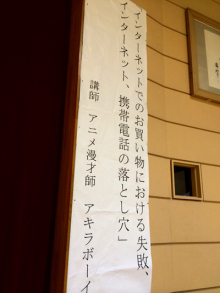 インターネットでのお買い物における失敗、
インターネット、携帯電話の落とし穴」
講師 アニメ漫才師 アキラボーイ